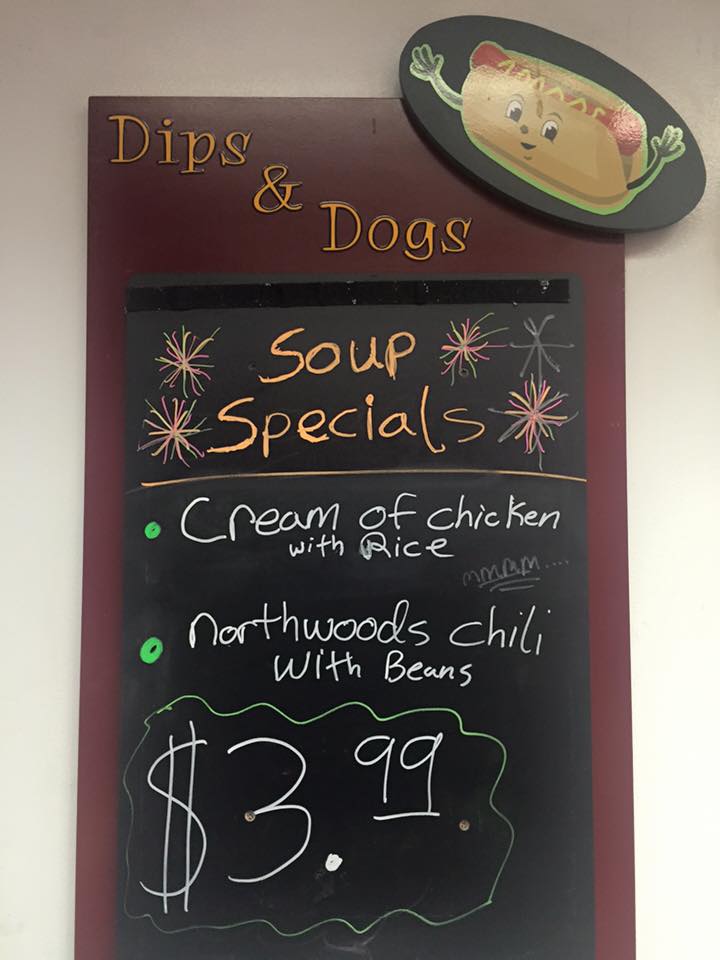 Dips
&
Dogs
Soup
Specials
Cream of chicken
with Rice
mmmm....
northwoods chili
With Beans
$3.99